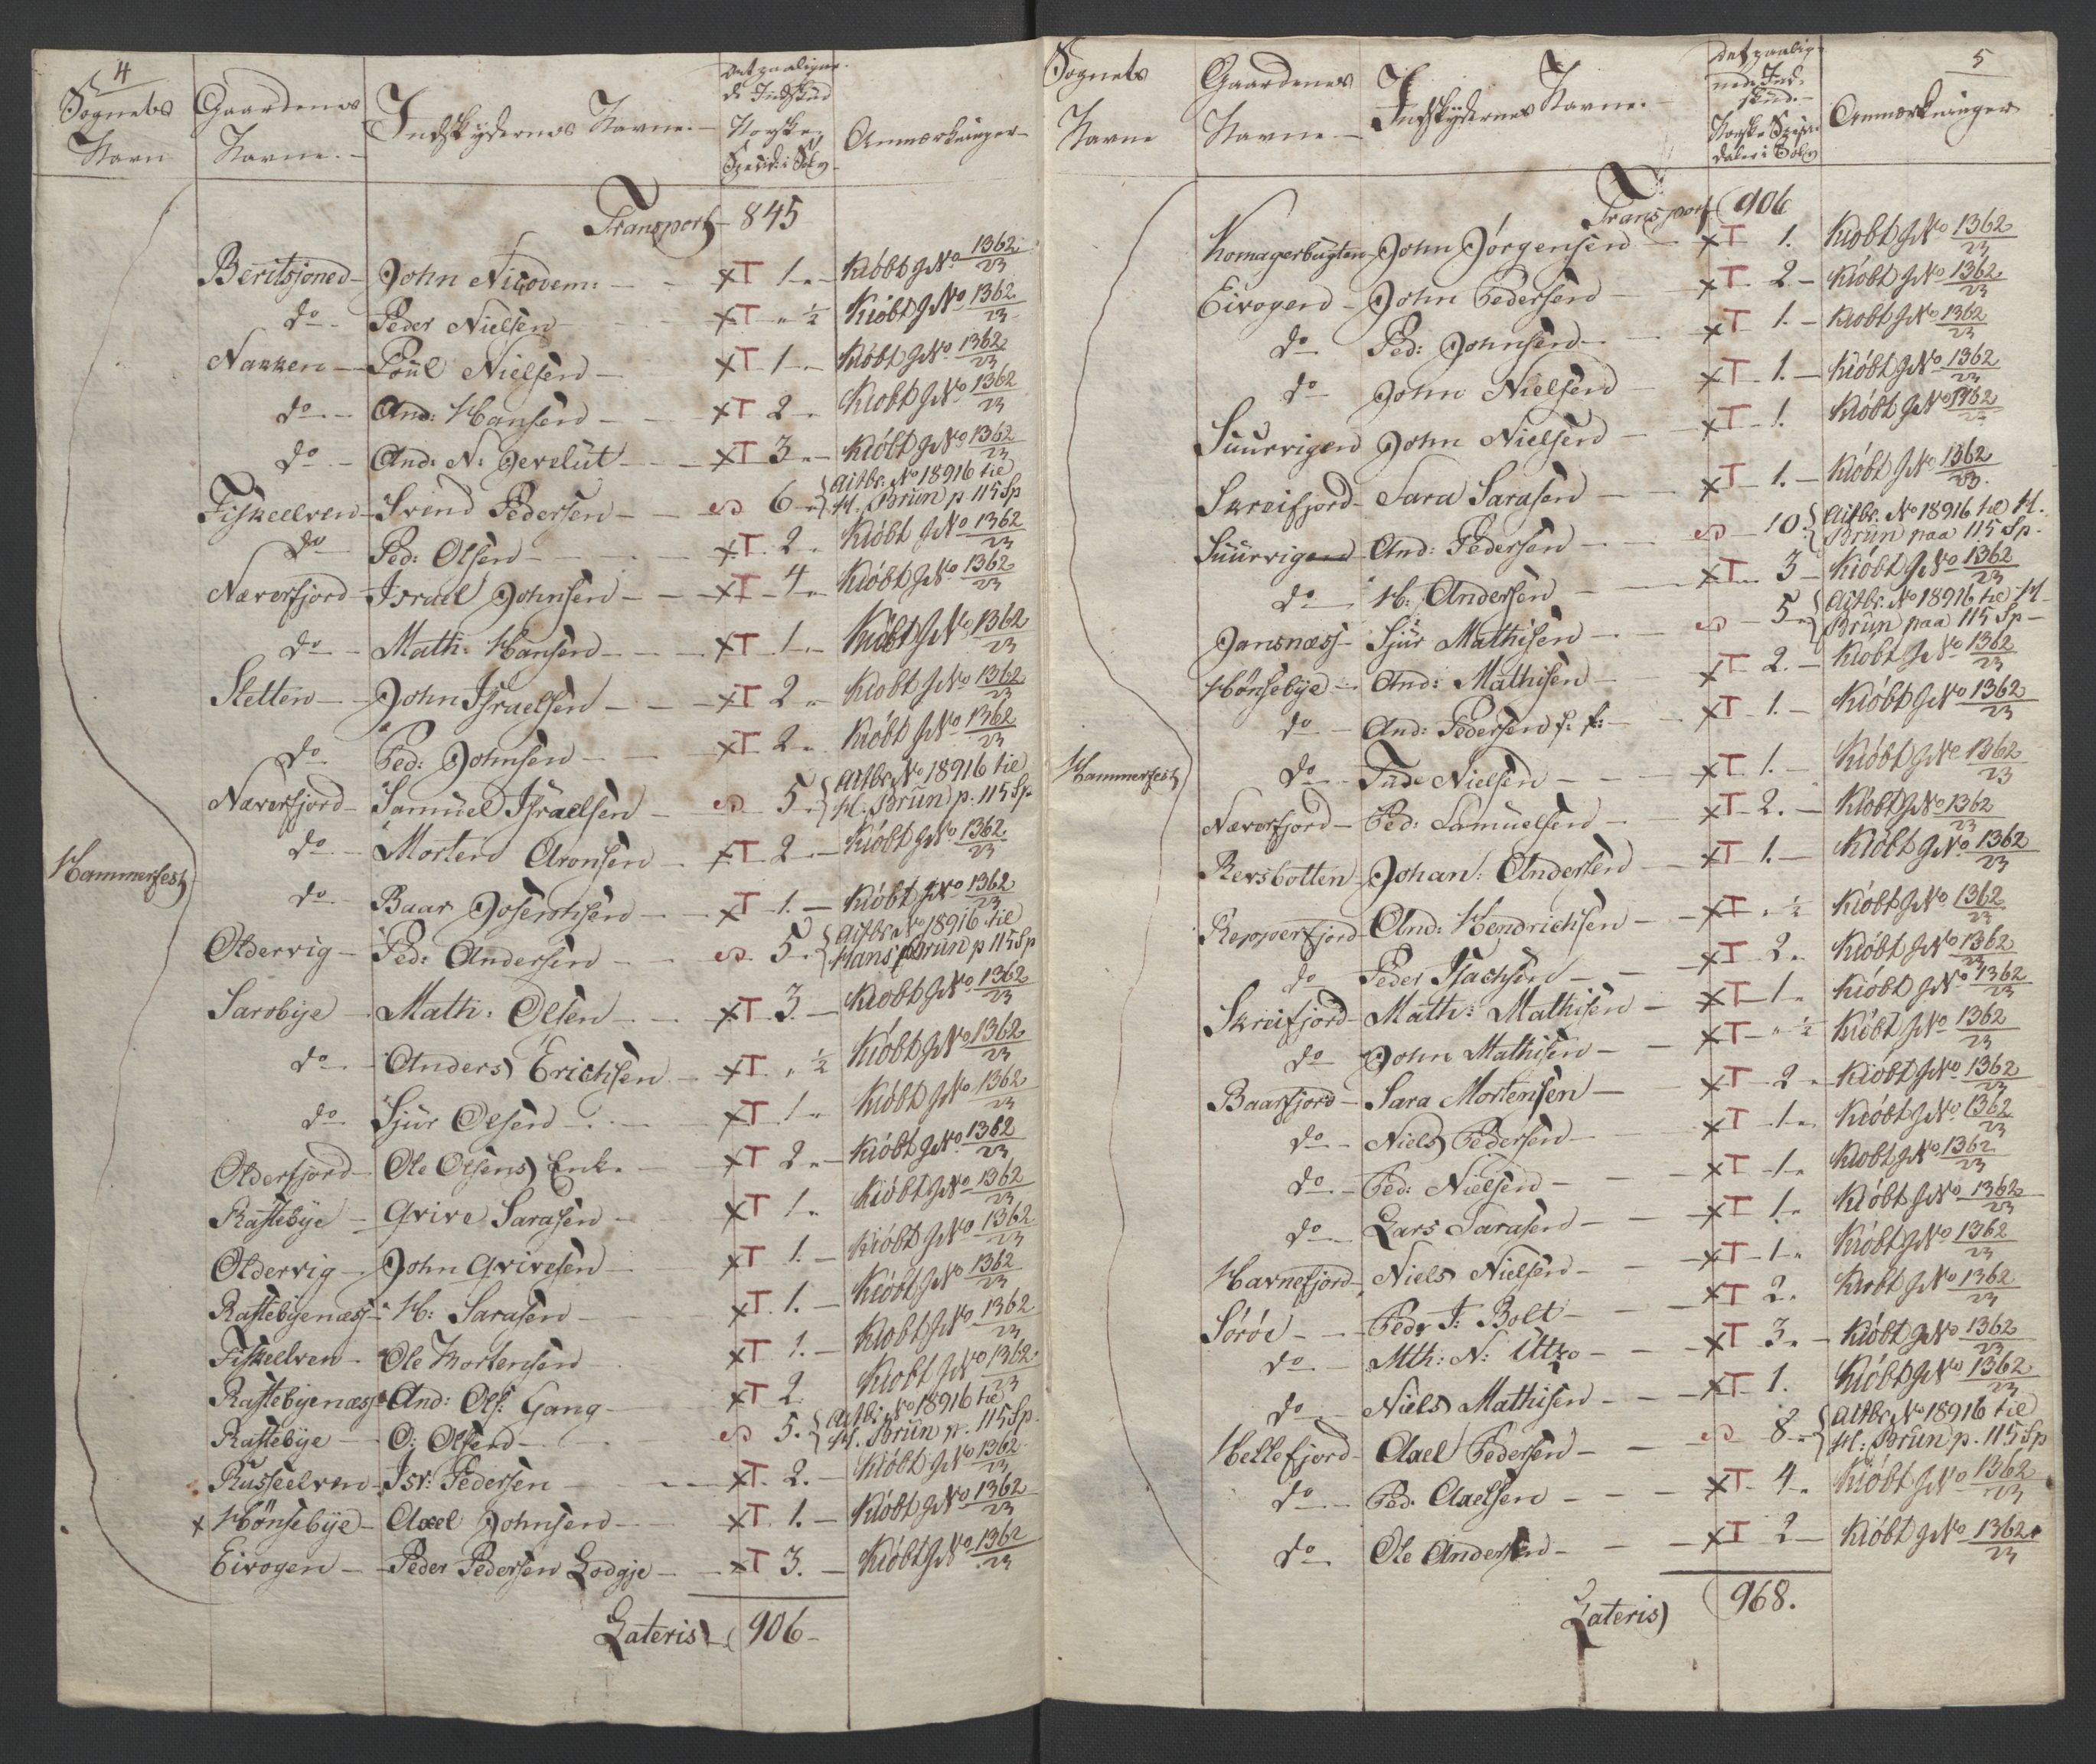 4
Sognets Navn
Gaardenes Navne.
Indskydernes Navne.
Det paalignede Indskud Norske Specid: i Sølv
Anmærkninger
Transport 845
Beritsjoned John Nicodem: T 1 Kiöbt J No 1362/23
do Peder Nielsen T ½ Kiöbt J No 1362/23
Nakken Poul Nielsen T 1 Kiöbt J No 1362/23
do And: Hansen T 2 Kiöbt J No 1362/23
do And: N: Jevelut T 3 Kiöbt J No 1362/23
Fiskeelven Svend Pedersen 6 { Actbr. No 18916 til
H. Brun p 115 Sp
do Ped: Olsen T 2 Kiöbt J No 1362/23
Næverfjord Israel Johnsen T 4 Kiöbt J No 1362/23
do Math: Hansen T 1 Kiöbt J No 1362/23
Sletten John Israelsen T 2 Kiöbt J No 1362/23
do Ped: Johnsen T 2 Kiöbt J No 1362/23
Næverfjord Samuel Israelsen 5 { Actbr No 18916 til
H. Brun p. 115 Sp
do Morten Aronsen T 2 Kiöbt J No 1362/23
Hammerfest
do Baar Josephsen T 1. Kiöbt J No 1362/23
Oldervig Ped: Andersen 5 { Actbr No 18916 til
Hans Brun p 115 Sp
Sarobye Math: Olsen T 3. Kiöbt J No 1362/23
do Anders Erichsen T ½ Kiöbt J No 1362/23
do Sjur Olsen T 1 Kiöbt J No 1362/23
Olderfjord Ole Olsens Enke T 2 Kiöbt J No 1362/23
Rastebye Qvive Sarasen T 1 Kiöbt J No 1362/23
Oldervig John Qvivesen T 1. Kiöbt J No 1362/23
Rastebyenæss H: Sarasen T 1. Kiöbt J No 1362/23
Fiskeelven Ole Mortensen T 1. Kiöbt J No 1362/23
Rastebyenæss And: Ols: Gang T 2 Kiöbt J No 1362/23
Rastebye O: Olsen 5. { Actbr No 18916 til
H. Brun p. 115 Sp.
Russeelven Isr: Pedersen T 2. Kiöbt J No 1362/23
x Hönsebye Axel Johnsen T 1. Kiöbt J No 1362/23
Eivogen Peder Pedersen Lodgje T 3. Kiöbt J No 1362/23
Lateris 906
5
Sognets Navne
Gaardenes Navne
Indskydernes Navne.
Det paalignede Indskud. Norske Specie daler i Sölv
Anmærkninger
Transport 906
Komagerbugten John Jörgensen T 1. Kiöbt J No 1362/23
Eivogen John Pedersen T 2 Kiöbt J No 1362/23
do Ped: Johnsen T 1. Kiöbt J No 1362/23
do John Nielsen T 1. Kiöbt J No 1362/23
Suurvigen John Nielsen T 1. Kiöbt J No 1362/23
Skreifjord Sara Sarasen T 1. Kiöbt J No 1362/23
Suurvigen And: Pedersen 10 { Actbr. No 18916 til H.
Brun paa 115 Sp.
do H: Andersen T 3 Kiöbt J No 1362/23
Jansnæss Sjur Mathisen 5 { Actbr. No 18916 til H
Brun paa 115 Sp
Hönsebye And: Mathisen T 2. Kiöbt J No 1362/23
do And: Pedersen f: f: T 1. Kiöbt J No 1362/23
Hammerfest
do Tude Nielsen T 1. Kiöbt J No 1362/23
Næverfjord Ped: Samuelsen T 2. Kiöbt J No 1362/23
Revsbotten Johan: Andersen T 1. Kiöbt J No 1362/23
Repperfjord And: Hendrichsen T ½ Kiöbt J No 1362/23
do Peder Isachsen T 2. Kiöbt J No 1362/23
Skreifjord Math: Mathisen T 1 Kiöbt J No 1362/23
do John Mathisen T ½ Kiöbt J No 1362/23
Baarfjord Sara Mortensen T 2 Kiöbt J No 1362/23
do Niels Pedersen T 1 Kiöbt J No 1362/23
do Ped: Nielsen T 1 Kiöbt J No 1362/23
do Lars Sarasen T 1 Kiöbt J No 1362/23
Havnefjord Niels Nielsen T 1 Kiöbt J No 1362/23
Söröe Pedr J: Bolt T 2. Kiöbt J No 1362/23
do Mth: N: Utzo T 3. Kiöbt J No 1362/23
do Niels Mathisen T 1. Kiöbt J No 1362/23
Hellefjord Axel Pedersen 8 { Actbr No 18916 til
H: Brun p. 115 Sp
do Ped: Axelsen T 4 Kiöbt J No 1362/23
do Ole Andersen T 2 Kiöbt J No 1362/23
Lateris 968.